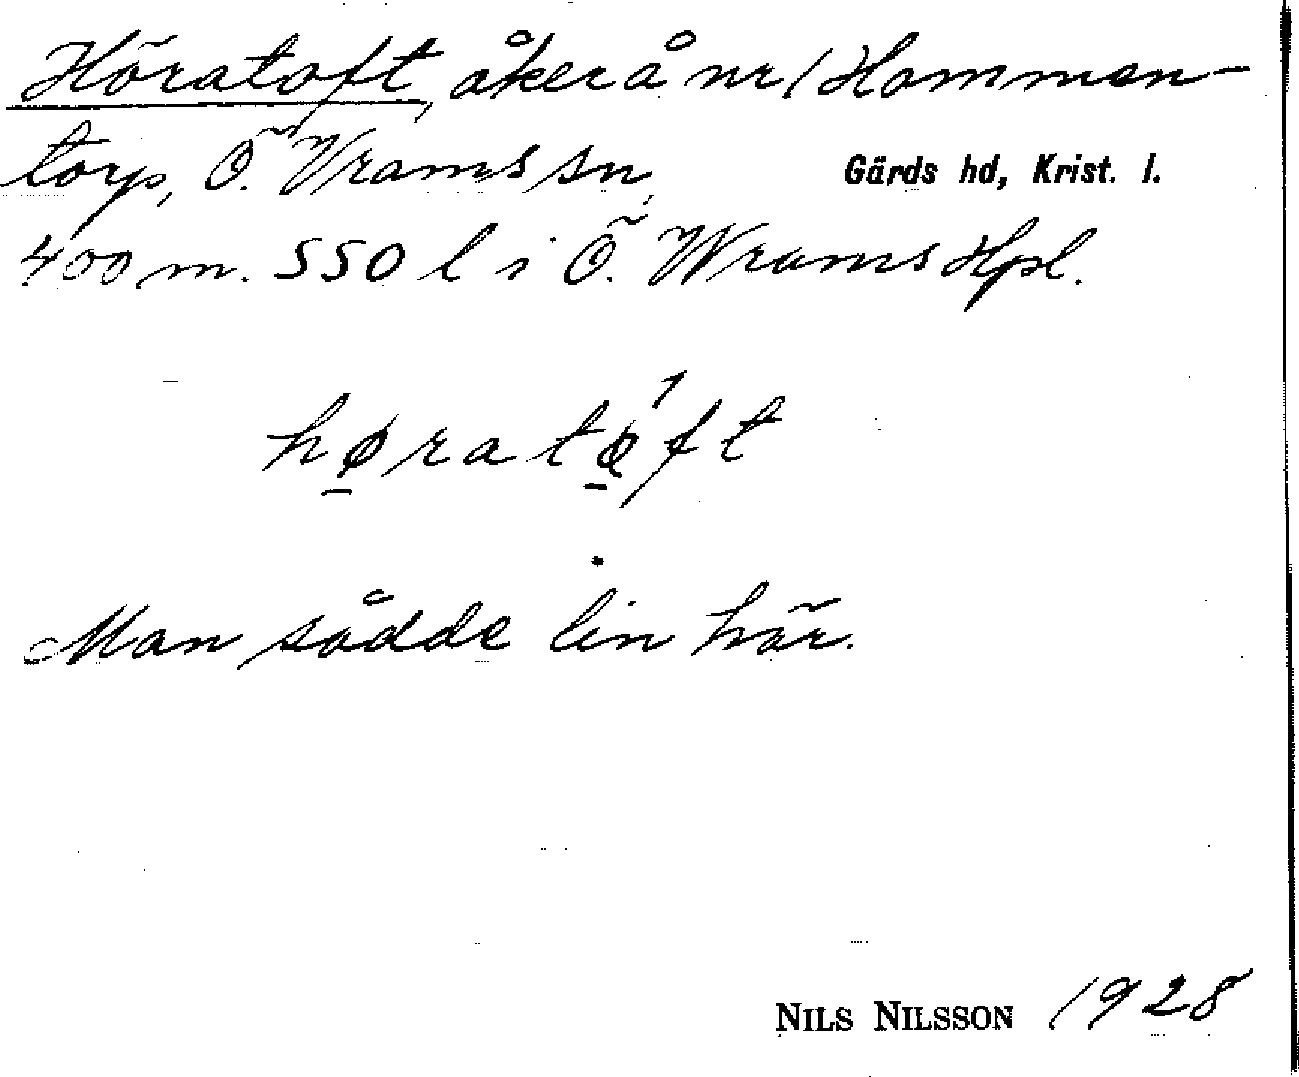 Höratoft, åker å nr 1 Hommen-
torp, Ö. Vrams sn, Gärds hd, Krist. l.
400 m. SSO l i Ö. Wrams Hpl.
høratǿft
Man sådde lin här.
NILS NILSSON 1928